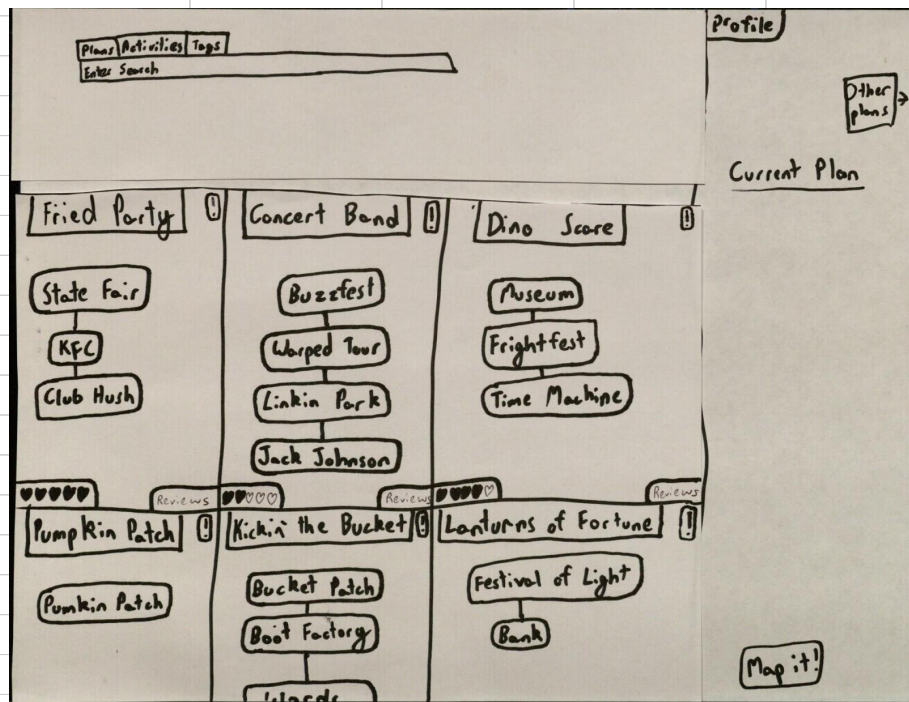 Plans Activities Tags
Enter Search
Profile
Other
plans
Current Plan
Fried Party !
State Fair
KFC
Club Hush
Reviews
Concert Band !
Buzzfest
Warped Tour
Linkin Park
Jack Johnson
Reviews
Dino Scare !
Museum
Frightfest
Time Machine
Reviews
Pumpkin Patch !
Pumkin Patch
Kickin' the Bucket !
Bucket Patch
Boot Factory
Lanturns of Fortune !
Festival of Light
Bank
Map it!